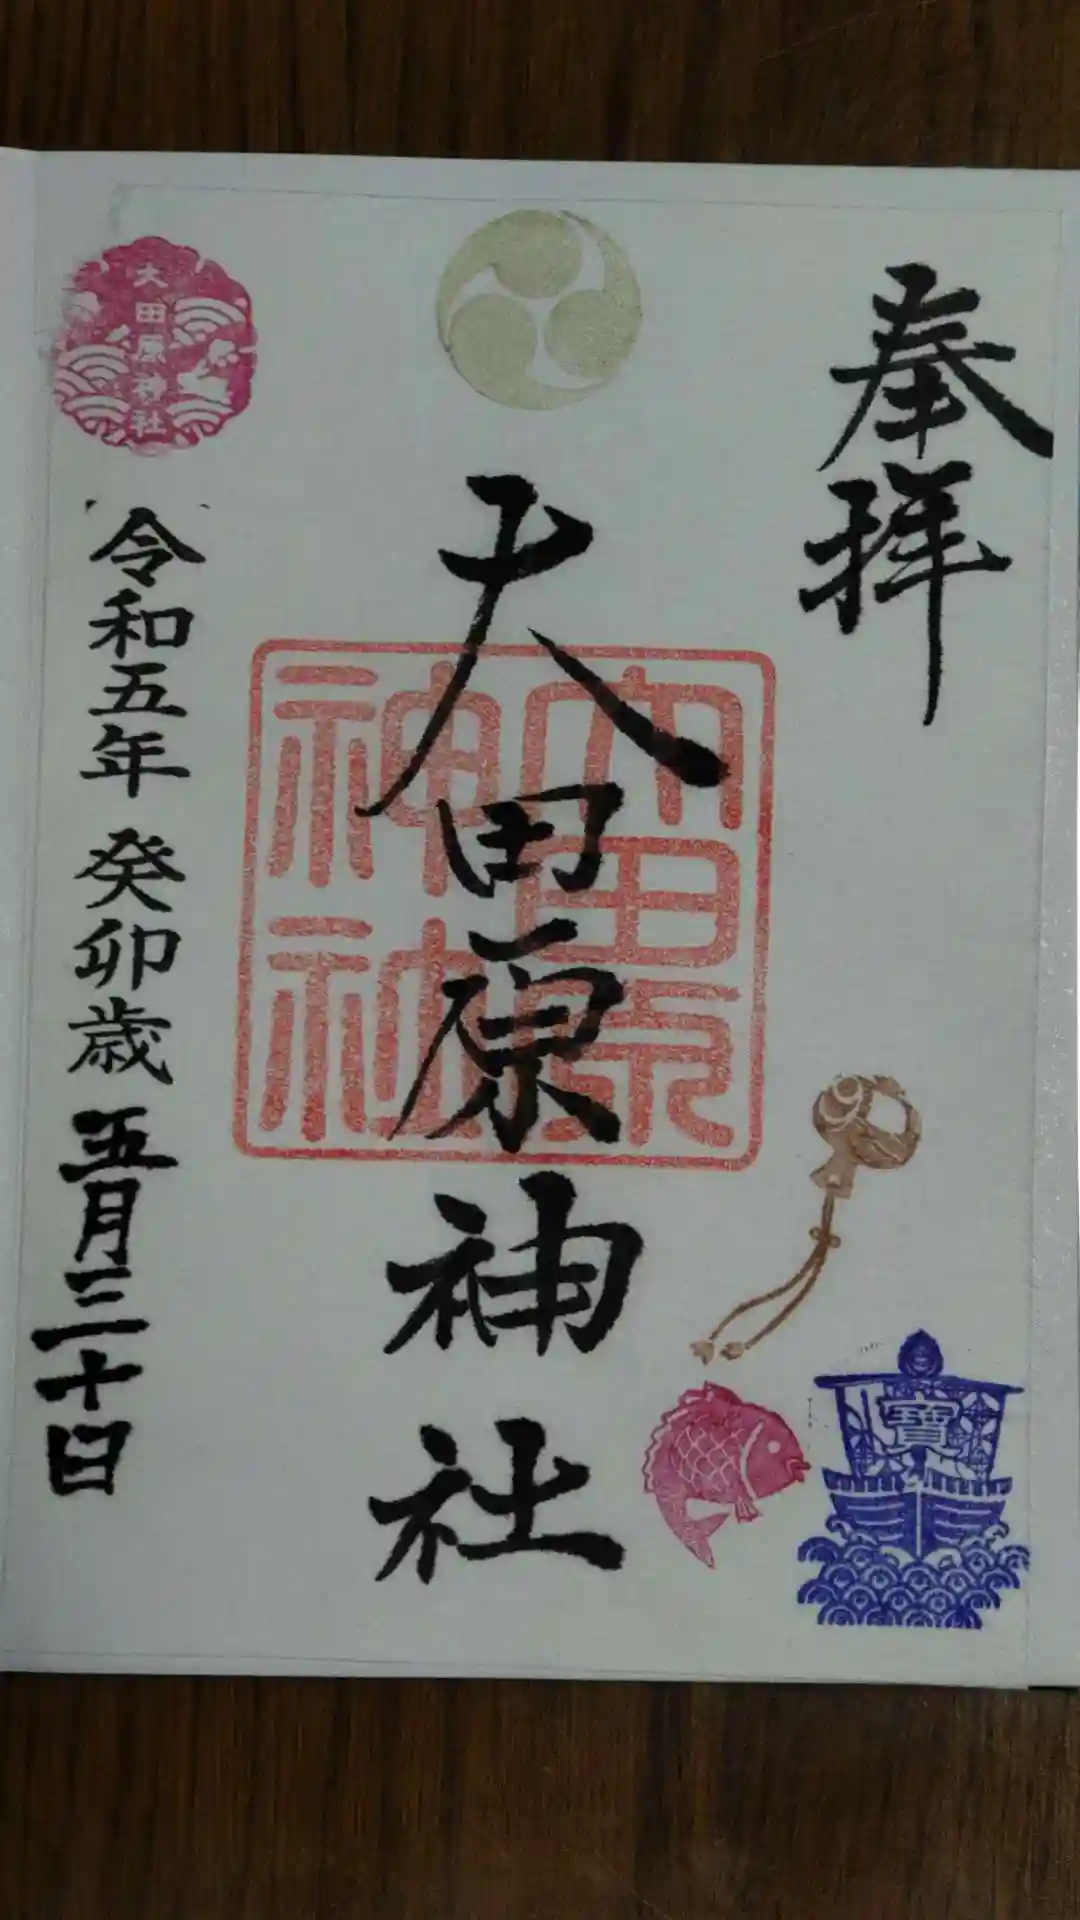 奉拝
大田原神社
大田原神社
令和五年 癸卯歳 五月三十日
大田原神社
寶